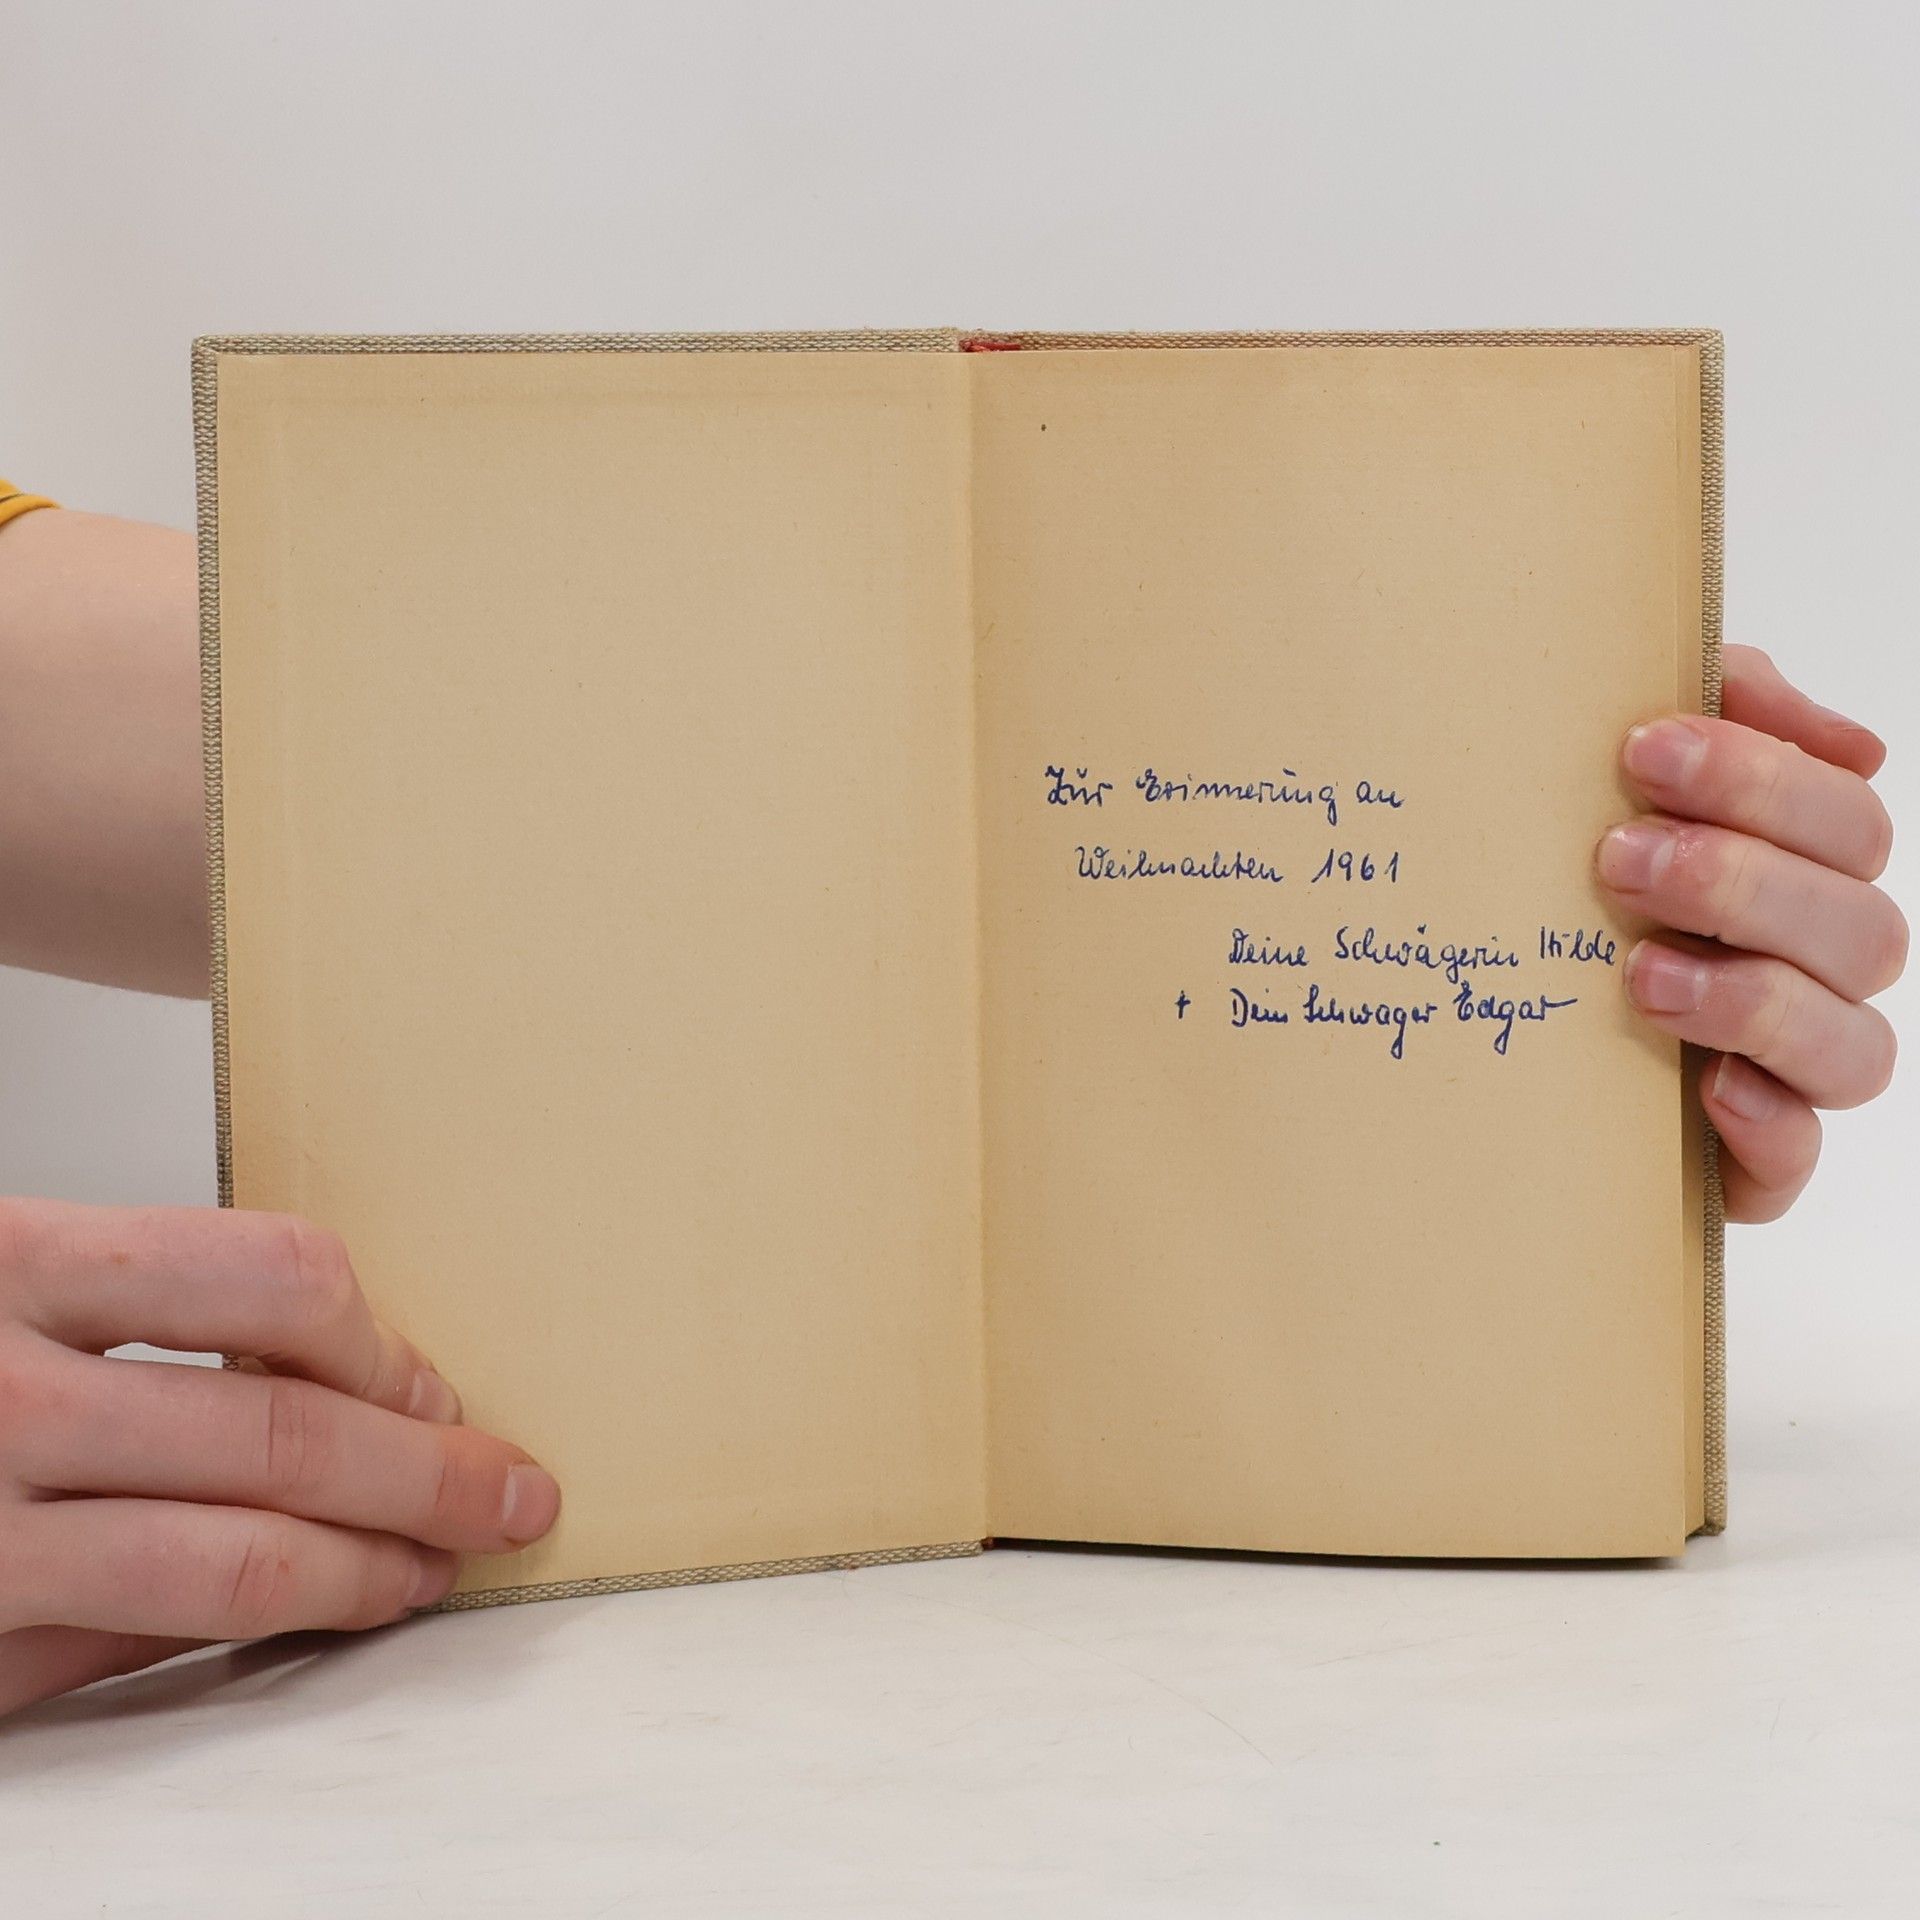 Zur Erinnerung an
Weihnachten 1961
Deine Schwägerin Hilde
+ Dein Schwager Edgar